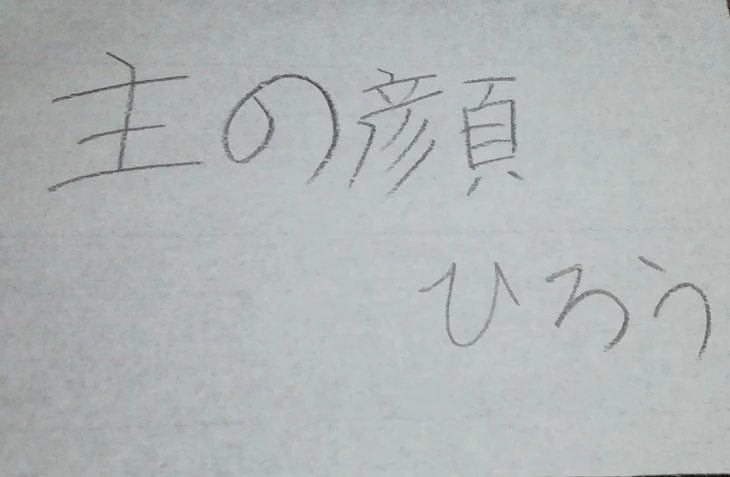 主の顔
ひろう